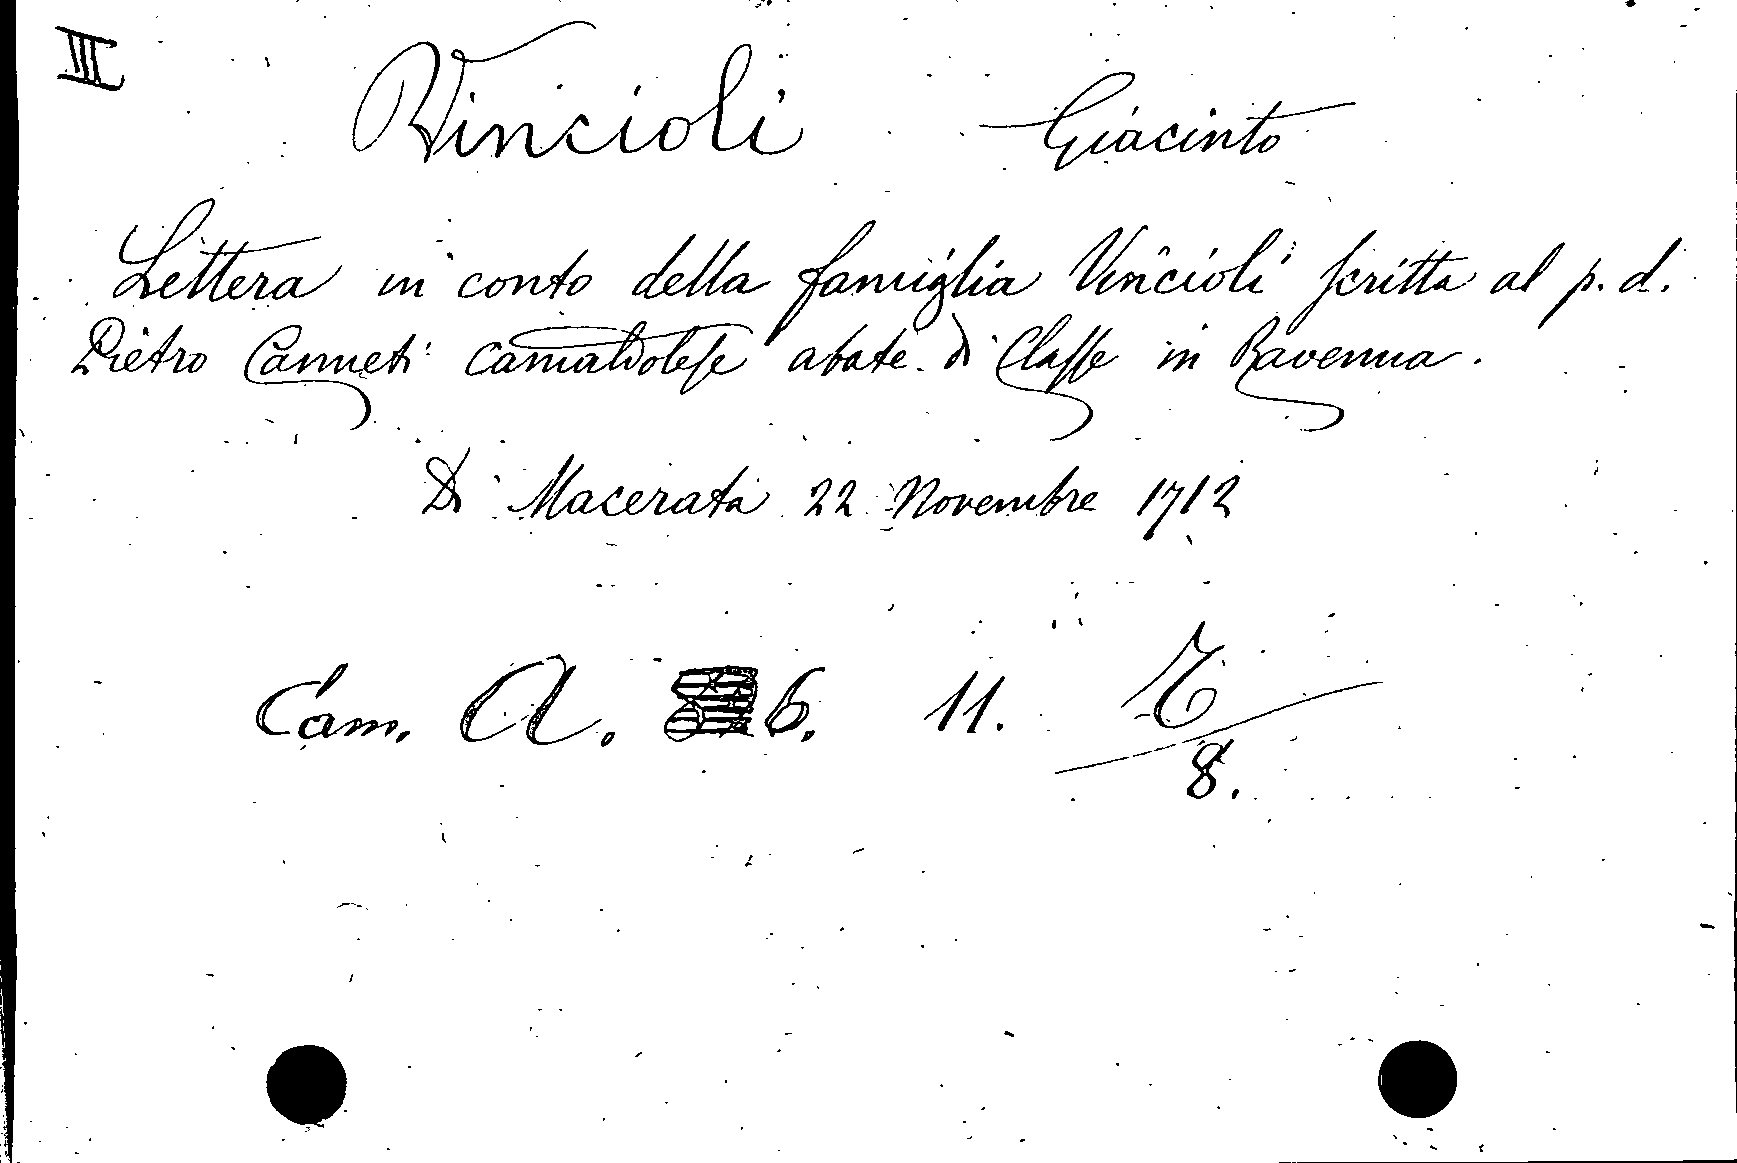 III
Vincioli Giacinto
Lettera in conto della famiglia Vincioli scritta al p. d.
Pietro Canneti camaldolese abate di Classe in Ravenna.
Di Macerata 22 Novembre 1712
Cam. A. 6. 11.
8.